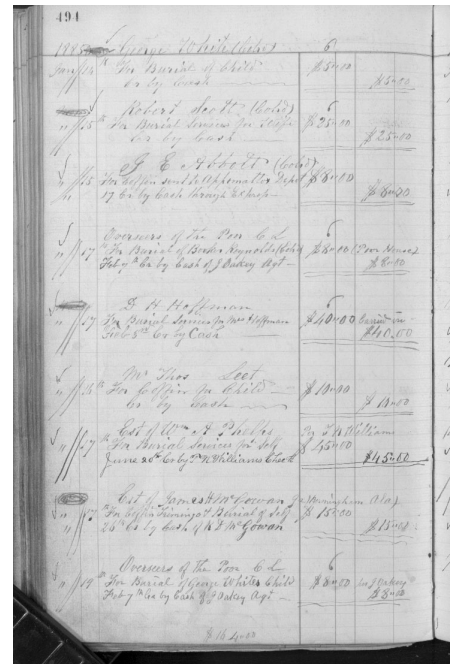 494
1885 George White (Cold) 6
Jany 14 For Burial of Child $5-00
Cr by Cash $5-00
Robert Scott (Cold) 6
" 15 For Burial Services for Wife $25-00
Cr by Cash $25-00
G E Abbott (Cold)
" 15 For Coffin send to Appomattox Depot $8-00
17 Cr by Cash through Express $8-00
Overseers of the Poor C. L. 6
" 17 For Burial of Reynolds (Cold) $8-00 (Poor House)
Feby 7th Cr by Cash of J Oakey Agt $8-00
G H Hoffman 6
" 17 For Burial Services for Mrs Hoffman $40-00
Feb 5th Cr by Cash $40.00
Mr Thos Leet
" 16 For Coffin for Child $10-00
Cr by Cash $10-00
Est of Wm A Phelps Pr T. N. Williams
" 17 For Burial Services for Self $45-00
June 20th Cr by T. N Williams Check $45-00
Est of James H McGowan (Birmingham Ala)
" 17 For Coffin Trimings & Burial of Self $15-00
" 26th Cr by Cash of K D McGowan $15-00
Overseers of the Poor C L 6
" 19 For Burial of George Whites Child $8-00 by J Oakey
Feby 7th Cr by Cash of J Oakey Agt $8-00
$164-00